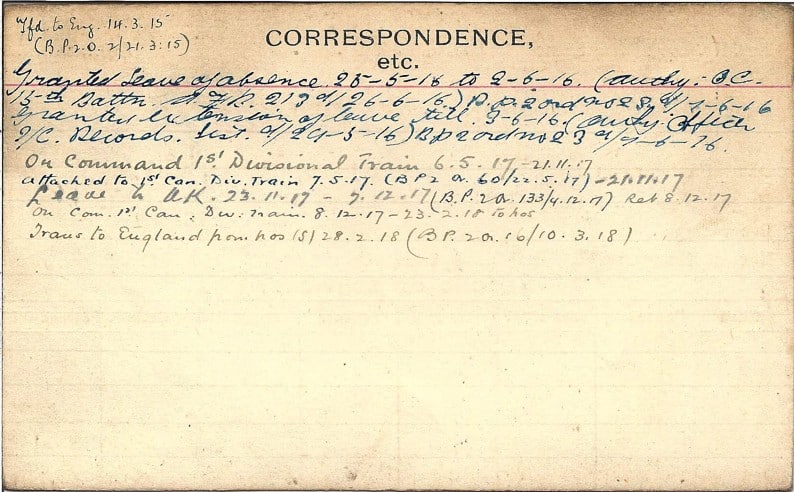 Tfd. to Eng. 14.3.15
(B.P.2.O. 2/21.3.15)
CORRESPONDENCE,
etc.
Granted leave of absence 25-5-16 to 2-6-16. (Authy: O.C.
15th Battn. 213 d/26-6-16.) B.P.2 ord no 23 d/9-6-16
Granted Extension of leave till 3-6-16. (Authy: Officer
I/C. Records. List. d/29-5-16) B.P.2 ord no 23 d/9-6-16.
On Command 1st Divisional Train 6.5.17 -21.11.17
Attached to 1st Can. Div. Train 7.5.17. (B P 2 O. 60/22.5.17) -21.11.17
Leave to UK. 23.11.17 - 7.12.17 (B.P.2 O. 133/4.12.17) Ret 8.12.17
On Com. 1st Can. Div. Train. 8.12.17 - 23.2.18 to hos
Trans to England from hos (S) 28.2.18 (B P. 2 O. 16/10.3.18)